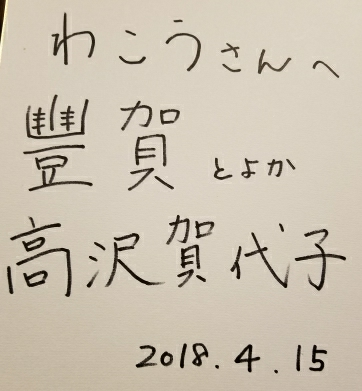 わこうさんへ
豐賀 とよか
高沢賀代子
2018.4.15